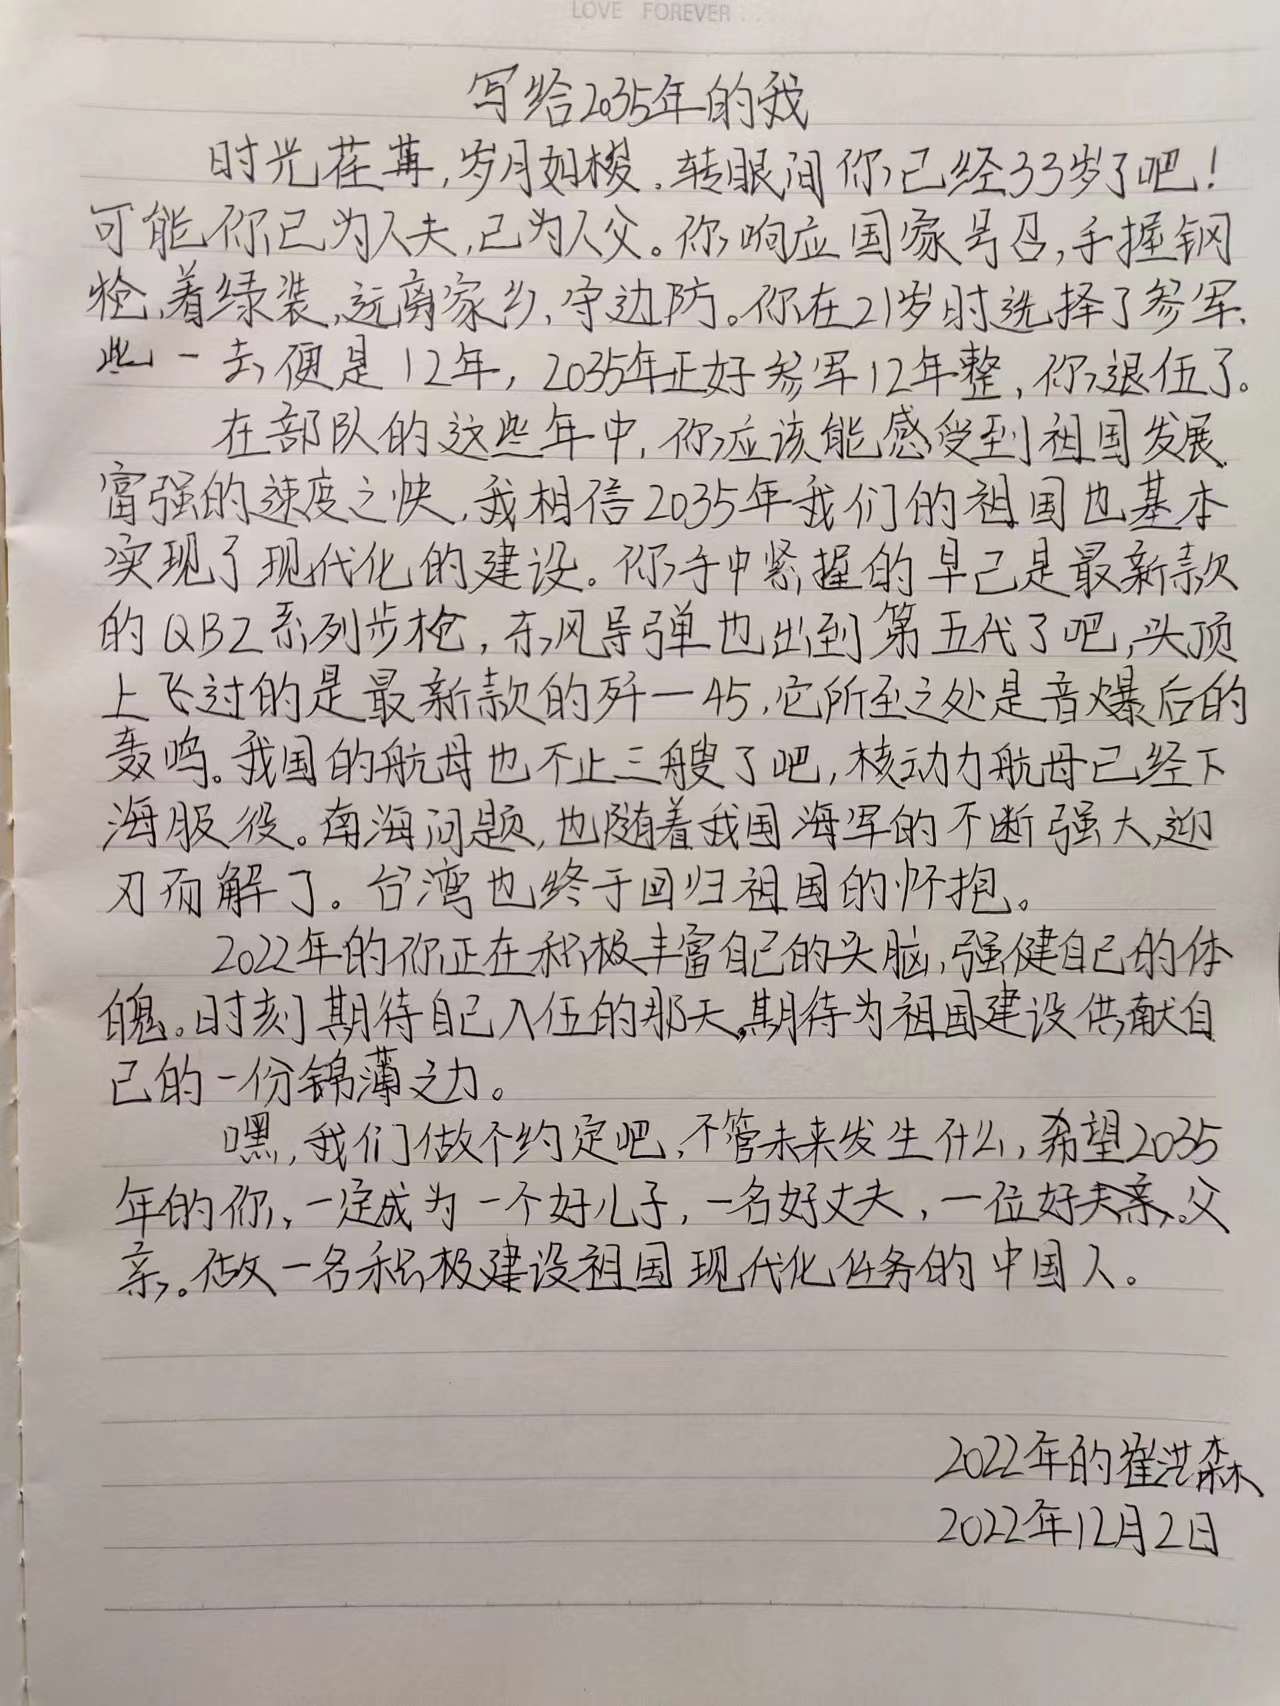 LOVE FOREVER...
写给2035年的我
时光荏苒,岁月如梭.转眼间你已经33岁了吧!
可能你已为人夫,已为人父。你响应国家号召,手握钢
枪,着绿装,远离家乡,守边防。你在21岁时选择了参军.
此一去便是12年,2035年正好参军12年整,你退伍了。
在部队的这些年中,你应该能感受到祖国发展
富强的速度之快,我相信2035年我们的祖国也基本
实现了现代化的建设。你手中紧握的早已是最新款
的QBZ系列步枪,东风导弹也出到第五代了吧,头顶
上飞过的是最新款的歼一45,它所至之处是音爆后的
轰鸣。我国的航母也不止三艘了吧,核动力航母已经下
海服役。南海问题,也随着我国海军的不断强大,迎
刃而解了。台湾也终于回归祖国的怀抱。
2022年的你正在积极丰富自己的头脑,强健自己的体
魄。时刻期待自己入伍的那天,期待为祖国建设供献自
己的一份锦薄之力。
嘿,我们做个约定吧,不管未来发生什么,希望2035
年的你,一定成为一个好儿子,一名好丈夫,一位好父
亲。做一名积极建设祖国现代化任务的中国人。
2022年的崔洪森
2022年12月2日